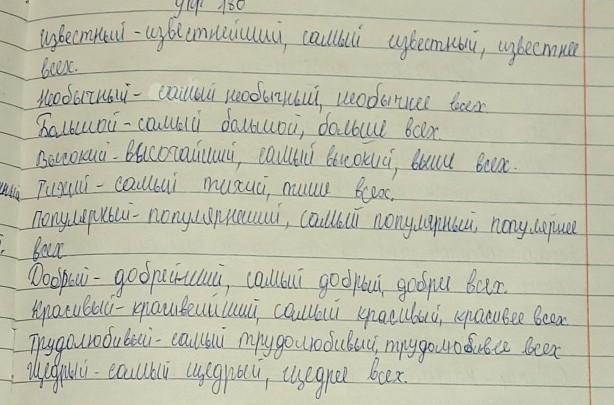 упр 180
известный - известнейший, самый известный, известнее
всех.
Необычный - самый необычный, необычнее всех
Большой - самый большой, больше всех
Высокий - высочайший, самый высокий, выше всех.
Тихий - самый тихий, тише всех.
Популярный - популярнейший, самый популярный, популярнее
всех
Добрый - добрейший, самый добрый, добрее всех.
Красивый - красивейший, самый красивый, красивее всех
Трудолюбивый - самый трудолюбивый, трудолюбивее всех
Щедрый - самый щедрый, щедрее всех.